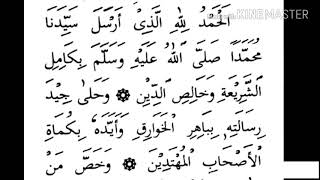 KINEMASTER
اَلْحَمْدُ لِلّٰهِ الَّذِيْ اَرْسَلَ سَيِّدَنَا
مُحَمَّدًا صَلَّى اللهُ عَلَيْهِ وَسَلَّمَ بِكَامِلِ
الشَّرِيْعَةِ وَخَالِصِ الدِّيْنِ ۞ وَحَلّٰى جِيْدَ
رِسَالَتِهٖ بِبَاهِرِ الْخَوَارِقِ وَاَيَّدَهٗ بِكُمَاةِ
الْاَصْحَابِ الْمُهْتَدِيْنَ ۞ وَخَصَّ مَنْ